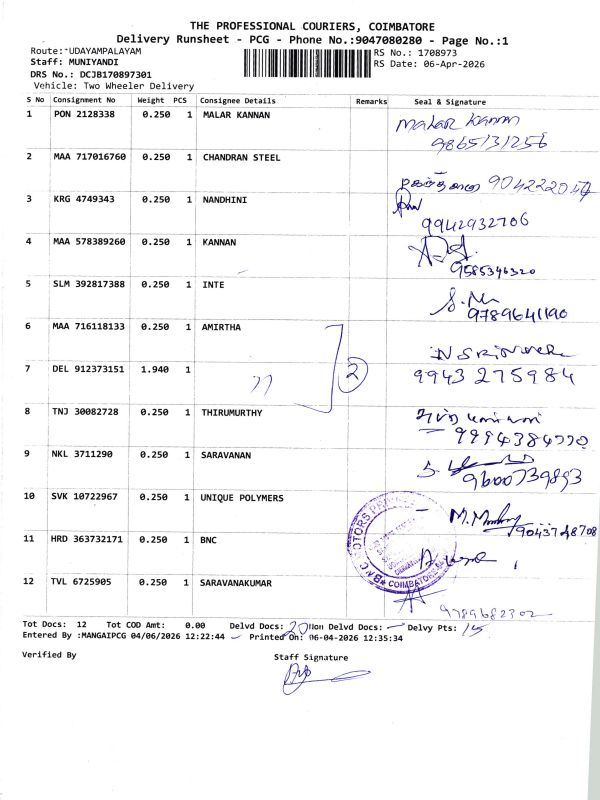 THE PROFESSIONAL COURIERS, COIMBATORE
Delivery Runsheet - PCG - Phone No.:9047080280 - Page No.:1
Route: UDAYAMPALAYAM
RS No.: 1708973
Staff: MUNIYANDI
RS Date: 06-Apr-2026
DRS No.: DCJB170897301
Vehicle: Two Wheeler Delivery
S No Consignment No Weight PCS Consignee Details Remarks Seal & Signature
1 PON 2128338 0.250 1 MALAR KANNAN Malar Kannan
9865131256
2 MAA 717016760 0.250 1 CHANDRAN STEEL
3 KRG 4749343 0.250 1 NANDHINI
9942932706
4 MAA 578389260 0.250 1 KANNAN
9585346320
5 SLM 392817388 0.250 1 INTE
9789641190
6 MAA 716118133 0.250 1 AMIRTHA
7 DEL 912373151 1.940 1 2 9943 275984
8 TNJ 30082728 0.250 1 THIRUMURTHY
9994384770
9 NKL 3711290 0.250 1 SARAVANAN
9600739893
10 SVK 10722967 0.250 1 UNIQUE POLYMERS
11 HRD 363732171 0.250 1 BNC
COIMBATORE
12 TVL 6725905 0.250 1 SARAVANAKUMAR
9789682302
Tot Docs: 12 Tot COD Amt: 0.00 Delvd Docs: 20 Non Delvd Docs: - Delvy Pts: 15
Entered By :MANGAIPCG 04/06/2026 12:22:44 Printed On: 06-04-2026 12:35:34
Verified By Staff Signature